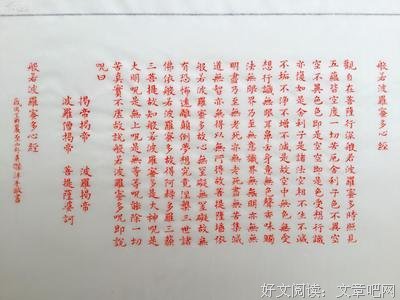 般若波羅蜜多心經
觀自在菩薩行深般若波羅蜜多時照見
五蘊皆空度一切苦厄舍利子色不異空
空不異色色即是空空即是色受想行識
亦復如是舍利子是諸法空相不生不滅
不垢不淨不增不減是故空中無色無受
想行識無眼耳鼻舌身意無色聲香味觸
法無眼界乃至無意識界無無明亦無無
明盡乃至無老死亦無老死盡無苦集滅
道無智亦無得以無所得故菩提薩埵依
般若波羅蜜多故心無罣礙無罣礙故無
有恐怖遠離顛倒夢想究竟涅槃三世諸
佛依般若波羅蜜多故得阿耨多羅三藐
三菩提故知般若波羅蜜多是大神呪是
大明呪是無上呪是無等等呪能除一切
苦真實不虛故說般若波羅蜜多呪即說
呪曰
揭帝揭帝 波羅揭帝
波羅僧揭帝 菩提薩婆訶
般若波羅蜜多心經
好文阅读：文章吧网